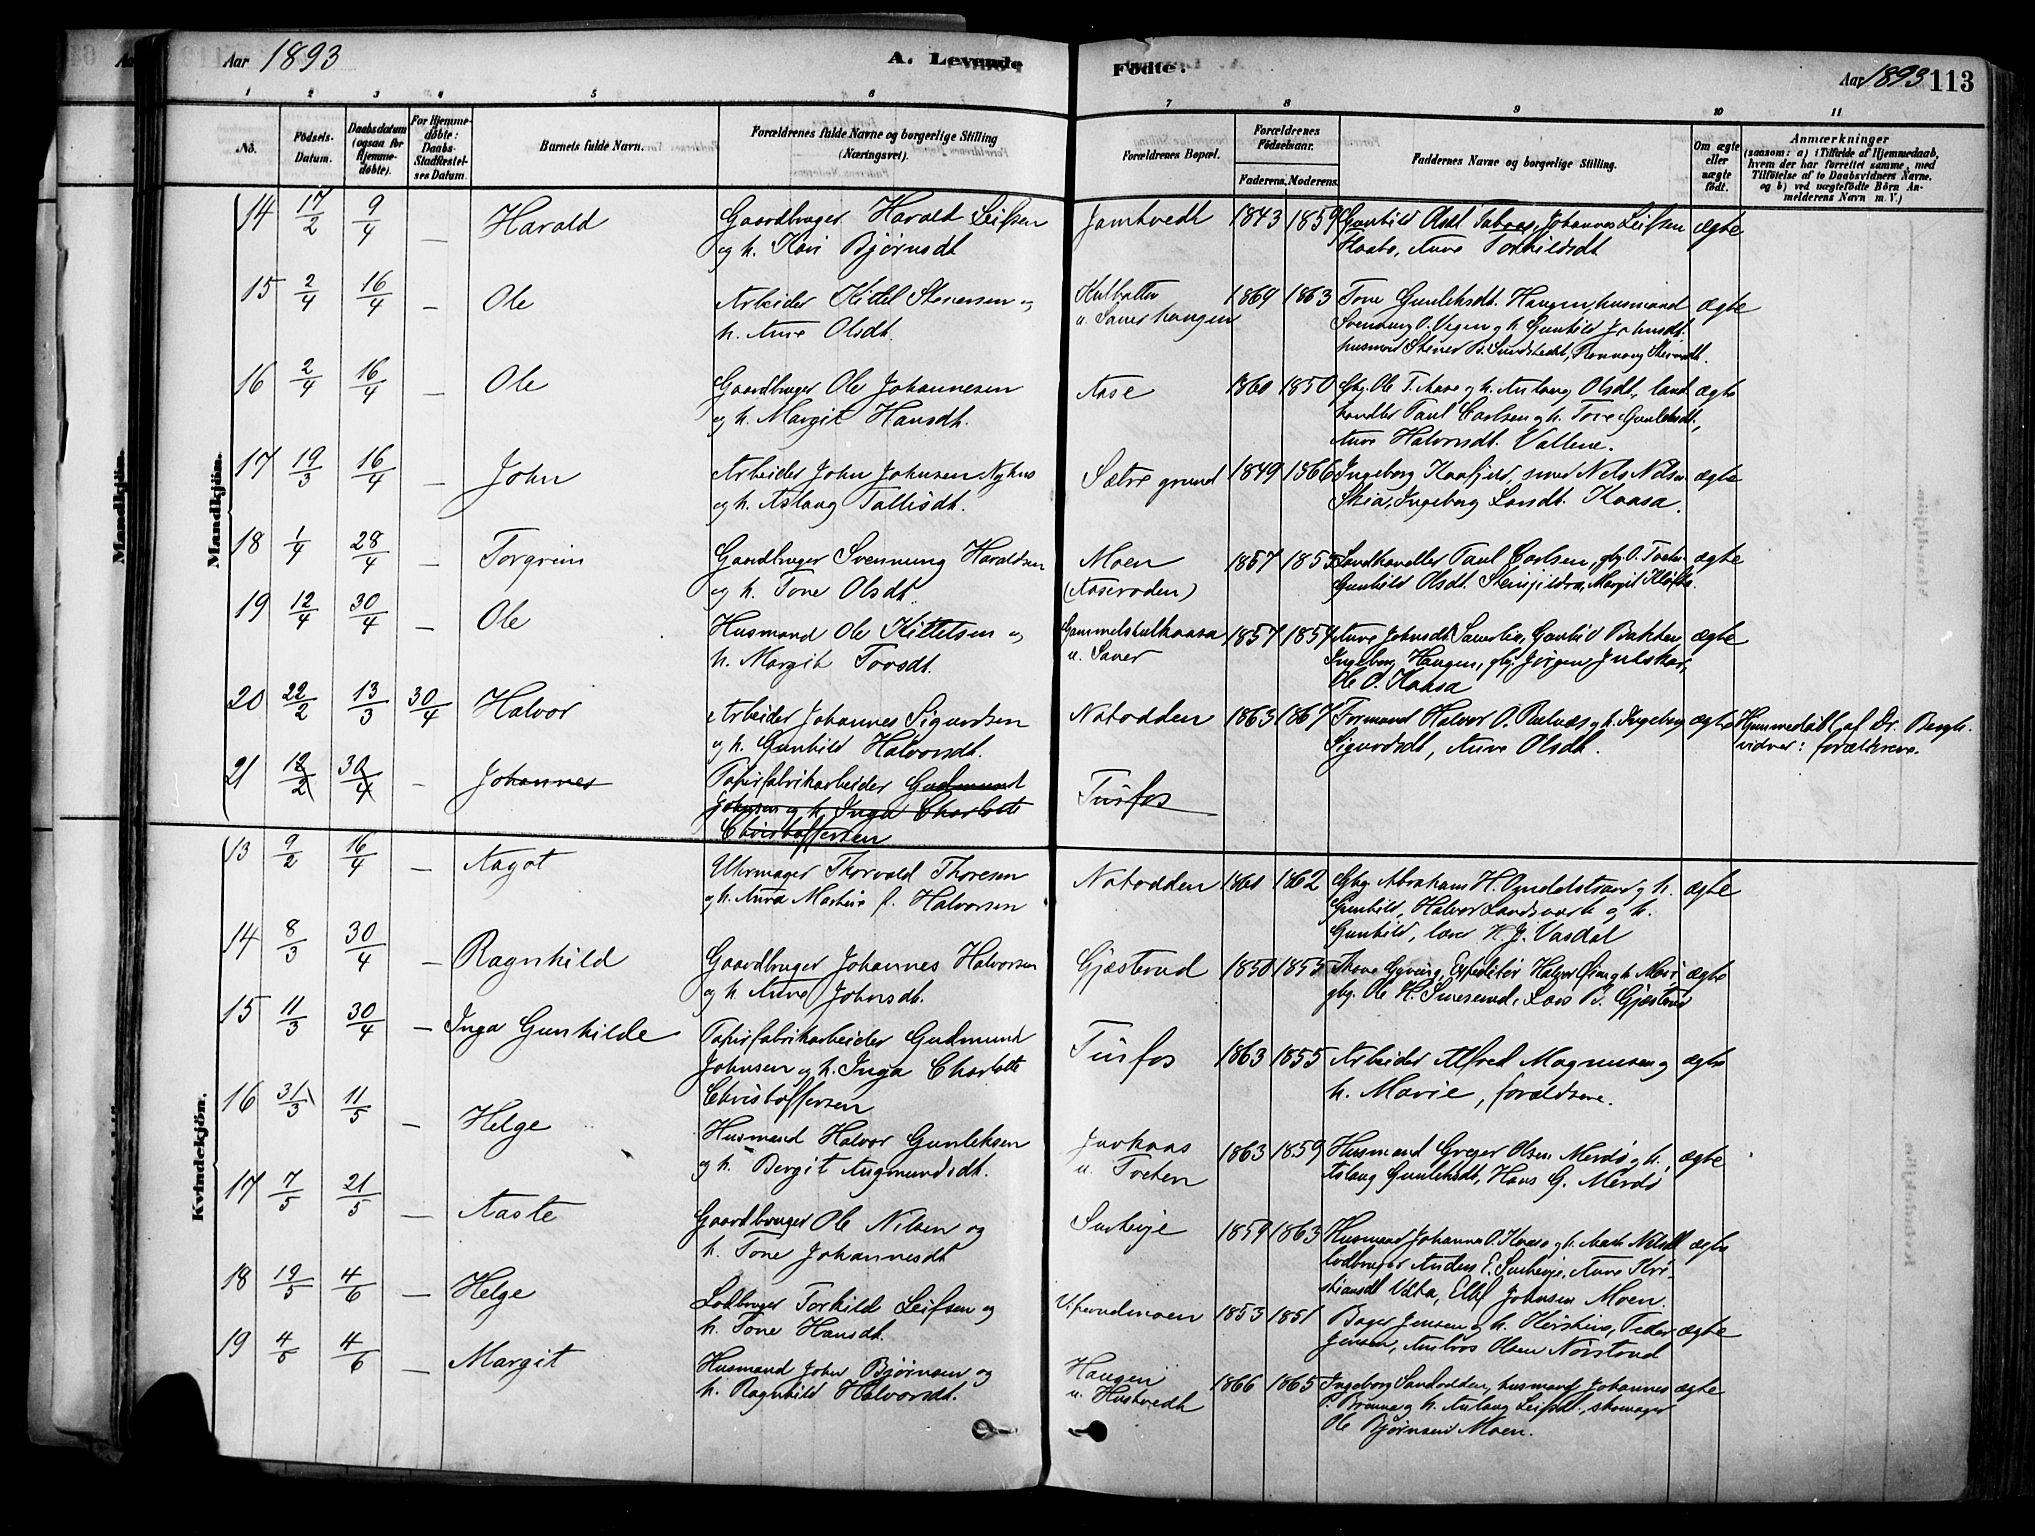 Aar 1893
A. Levende
Fødte.
Aar 1893 113
1 2 3 4 5 6 7 8 9 10 11
No.
Fødsels-Datum.
Daabsdatum (ogsaa for Hjemmedøbte).
For Hjemmedøbte: Daabs-Stadfæstelses Datum.
Barnets fulde Navn.
Forældrenes fulde Navne og borgerlige Stilling (Næringsvei).
Forældrenes Bopæl.
Forældrenes Fødselsaar.
Faderens. Moderens.
Faddernes Navne og borgerlige Stilling.
Om ægte eller uægte født.
Anmærkninger
(saasom: a) i Tilfælde af Hjemmedaab, hvem der har forrettet samme, med Tilføielse af to Daabsvidners Navne, og b) ved uægtefødte Børn Anmelderens Navn m. V.)
Mandkjön.
14 17/2 9/4 — Harald Gaardbruger Harald Leifsen Jamtvedt 1843 1859 Gunhild Olsdt. Johannes Leifsen ægte
og h. Kari Bjørnsdt Anne Torkildsdt
15 2/4 16/4 — Ole Arbeider Kittel Stenersen og 1869 1863 Tone Gunleksdt. Haugen, husmand ægte
h. Anne Olsdt. Svenung O. Vegen og h. Gunhild
husmand Stener
16 2/4 16/4 — Ole Gaardbruger Ole Johannesen Aase 1860 1850 Gbg. Ole T. Aase og h. Aslaug Olsdt., land- ægte
og h. Margit Hansdt. handler Paul Carlsen og h. Tone Gunleksdt.,
Anne Halvorsdt. Vallene.
17 19/3 16/4 — John Arbeider John Johnsen Nyhus Sætre grund 1849 1866 Ingeborg Kaafjeld, Nels Nelsen ægte
og h. Aslaug Tallisdt. Skia, Ingeborg Kaasa.
18 1/4 28/4 — Torgrim Gaardbruger Svennung Haraldsen Moen 1857 1855 Landhandler Paul Carlsen, gbg. O. Tveten ægte
og h. Tone Olsdt. (Aaseroden) Gunhild Olsdt. Margit
19 12/4 30/4 — Ole Husmand Ole Kittelsen og Gammelskulkaasa 1857 1854 Anne Johnsdt. Saverlia, Gunhild Bakken ægte
h. Margit Torsdt. u. Saner Ingeborg Haugen, gbg. Jørgen
Ole O. Kaasa
20 22/2 13/3 30/4 Halvor Arbeider Johannes Sigurdsen Notodden 1863 1867 Formand Halvor O. og h. Ingeborg ægte Hjemmedøbt af Dr. Bergh.
og h. Gunhild Halvorsdt. Sigurdsdt, Anne Olsdt. vidner: forældrene.
21 12/2 30/4 — Johannes Papirfabrikarbeider Gudmund Tinfos
Johnsen og h. Inga Charlotte
Christoffersen
Kvindekjön.
13 9/2 16/4 — Aagot Uhrmager Thorvald Thoresen Notodden 1860 1862 Gbg. Abraham H. og h. ægte
og h. Anna Mathie f. Halvorsen Gunhild, Halvor Landsverk og h.
Gunhild, H. J. Vasdal
14 8/3 30/4 — Ragnhild Gaardbruger Johannes Halvorsen Gjæstrud 1850 1855 Expeditør Halvor ægte
og h. Anne Johnsdt. gbg. Ole H. Lars B. Gjæstrud
15 11/3 30/4 — Inga Gunhilde Papirfabrikarbeider Gudmund Tinfos 1863 1855 Arbeider Alfred Magnusen og ægte
Johnsen og h. Inga Charlotte h. Marie, forældrene.
Christoffersen
16 31/3 11/5 — Helge Husmand Halvor Gunleksen 1863 1859 Husmand Greger Olsen Merdø og h. ægte
og h. Bergit Augmundsdt. u. Tveten Aslaug Gunleksdt, Hans G. Merdø
17 7/5 21/5 — Aaste Gaardbruger Ole Nilsen og 1859 1863 Husmand Johannes O. Kaasa og h. ægte
h. Tone Johannesdt lodbruger Anders E. Anne Kri-
stiansdt Johnsen Moen.
18 19/5 4/6 — Helge Lodbruger Torkild Leifsen og 1853 1851 Bager Jensen og h. Kirstine, Peder ægte
h. Tone Hansdt. Jensen, Olsen
19 4/5 4/6 — Margit Husmand John Bjørnsen og Haugen 1866 1865 Ingeborg Sandodden, husmand Johannes ægte
h. Ragnhild Halvorsdt. u. Hustvedt og h. Aslaug Leifsdt., skomager
Ole Bjørnsen Moen.